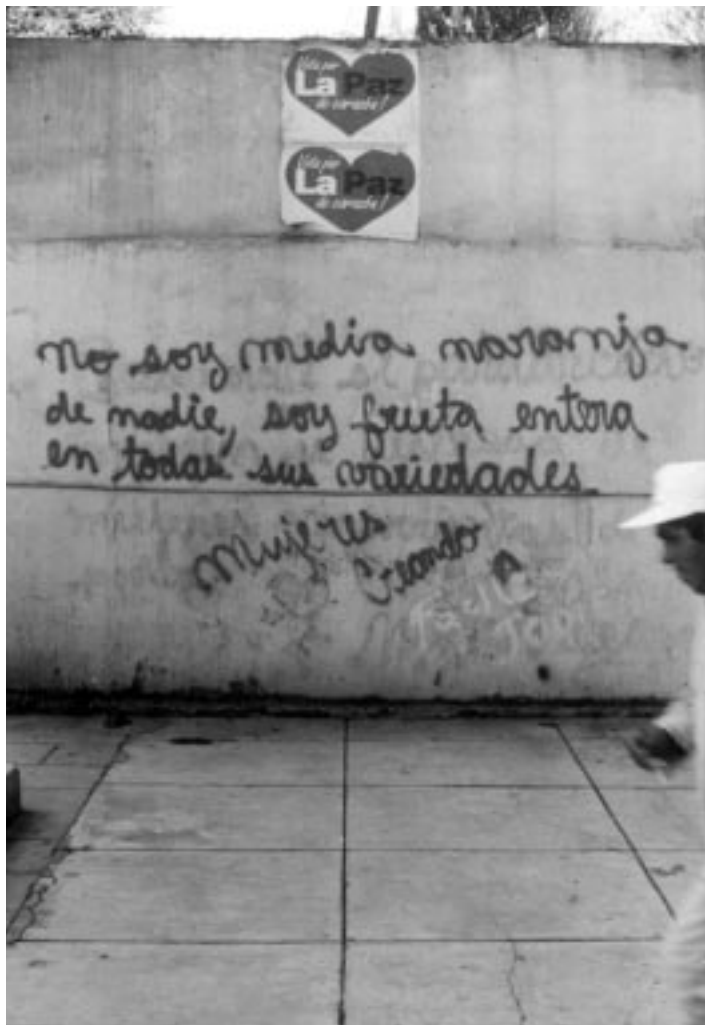 La Paz
de corazón!
La Paz
de corazón!
no soy media naranja
de nadie, soy fruta entera
en todas sus variedades
mujeres
Creando